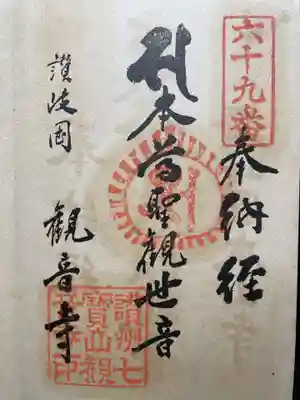 六十九番
奉納経
本尊聖觀世音
讃岐國
觀音寺
讃州七
寶山觀
音寺印